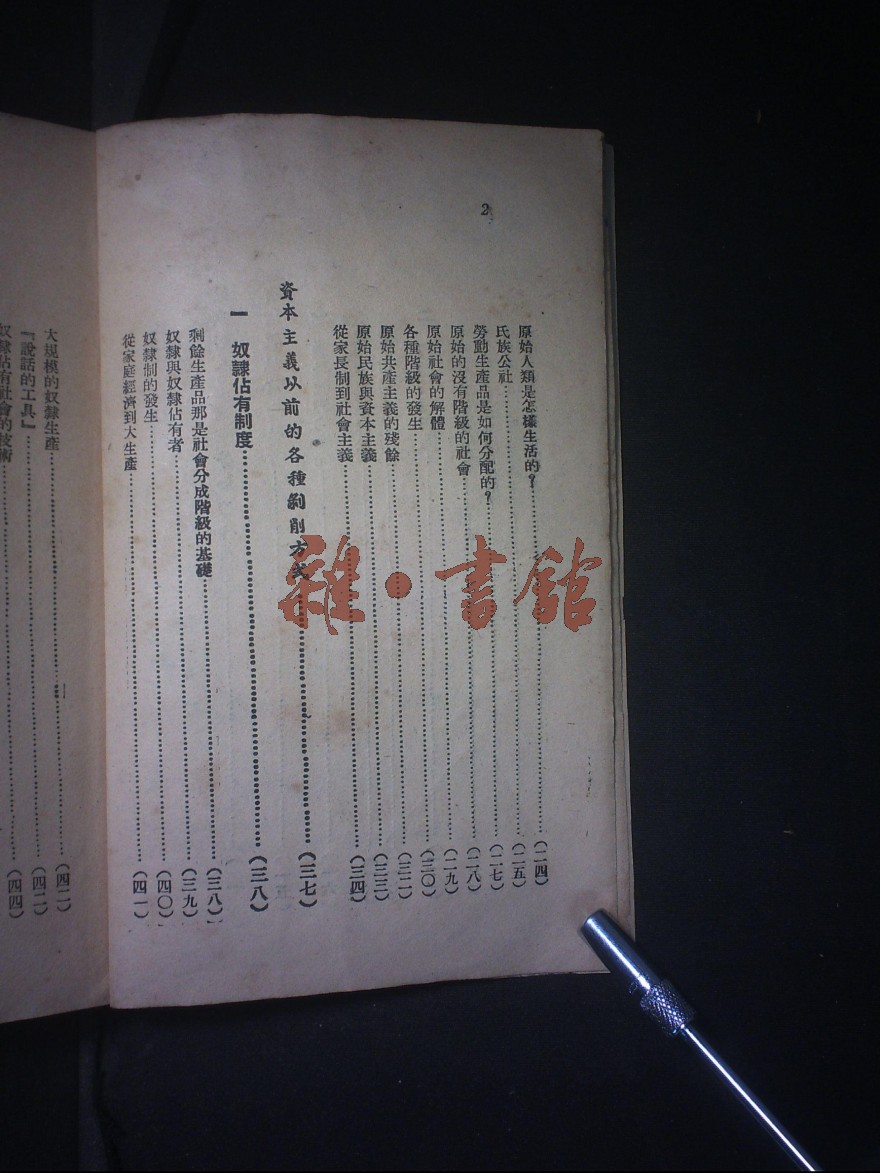 2
原始人類是怎樣生活的？……(二四)
氏族公社……(二五)
勞動生產品是如何分配的？……(二七)
原始的沒有階級的社會……(二八)
原始社會的解體……(二九)
各種階級的發生……(三〇)
原始共產主義的殘餘……(三二)
原始民族與資本主義……(三三)
從家長制到社會主義……(三四)
資本主義以前的各種剝削方式……(三七)
一 奴隸佔有制度……(三八)
剩餘生產品那是社會分成階級的基礎……(三八)
奴隸與奴隸佔有者……(三九)
奴隸制的發生……(四〇)
從家庭經濟到大生產……(四一)
大規模的奴隸生產……(四二)
『說話的工具』……(四二)
奴隸佔有社會的技術……(四四)
雜·書館